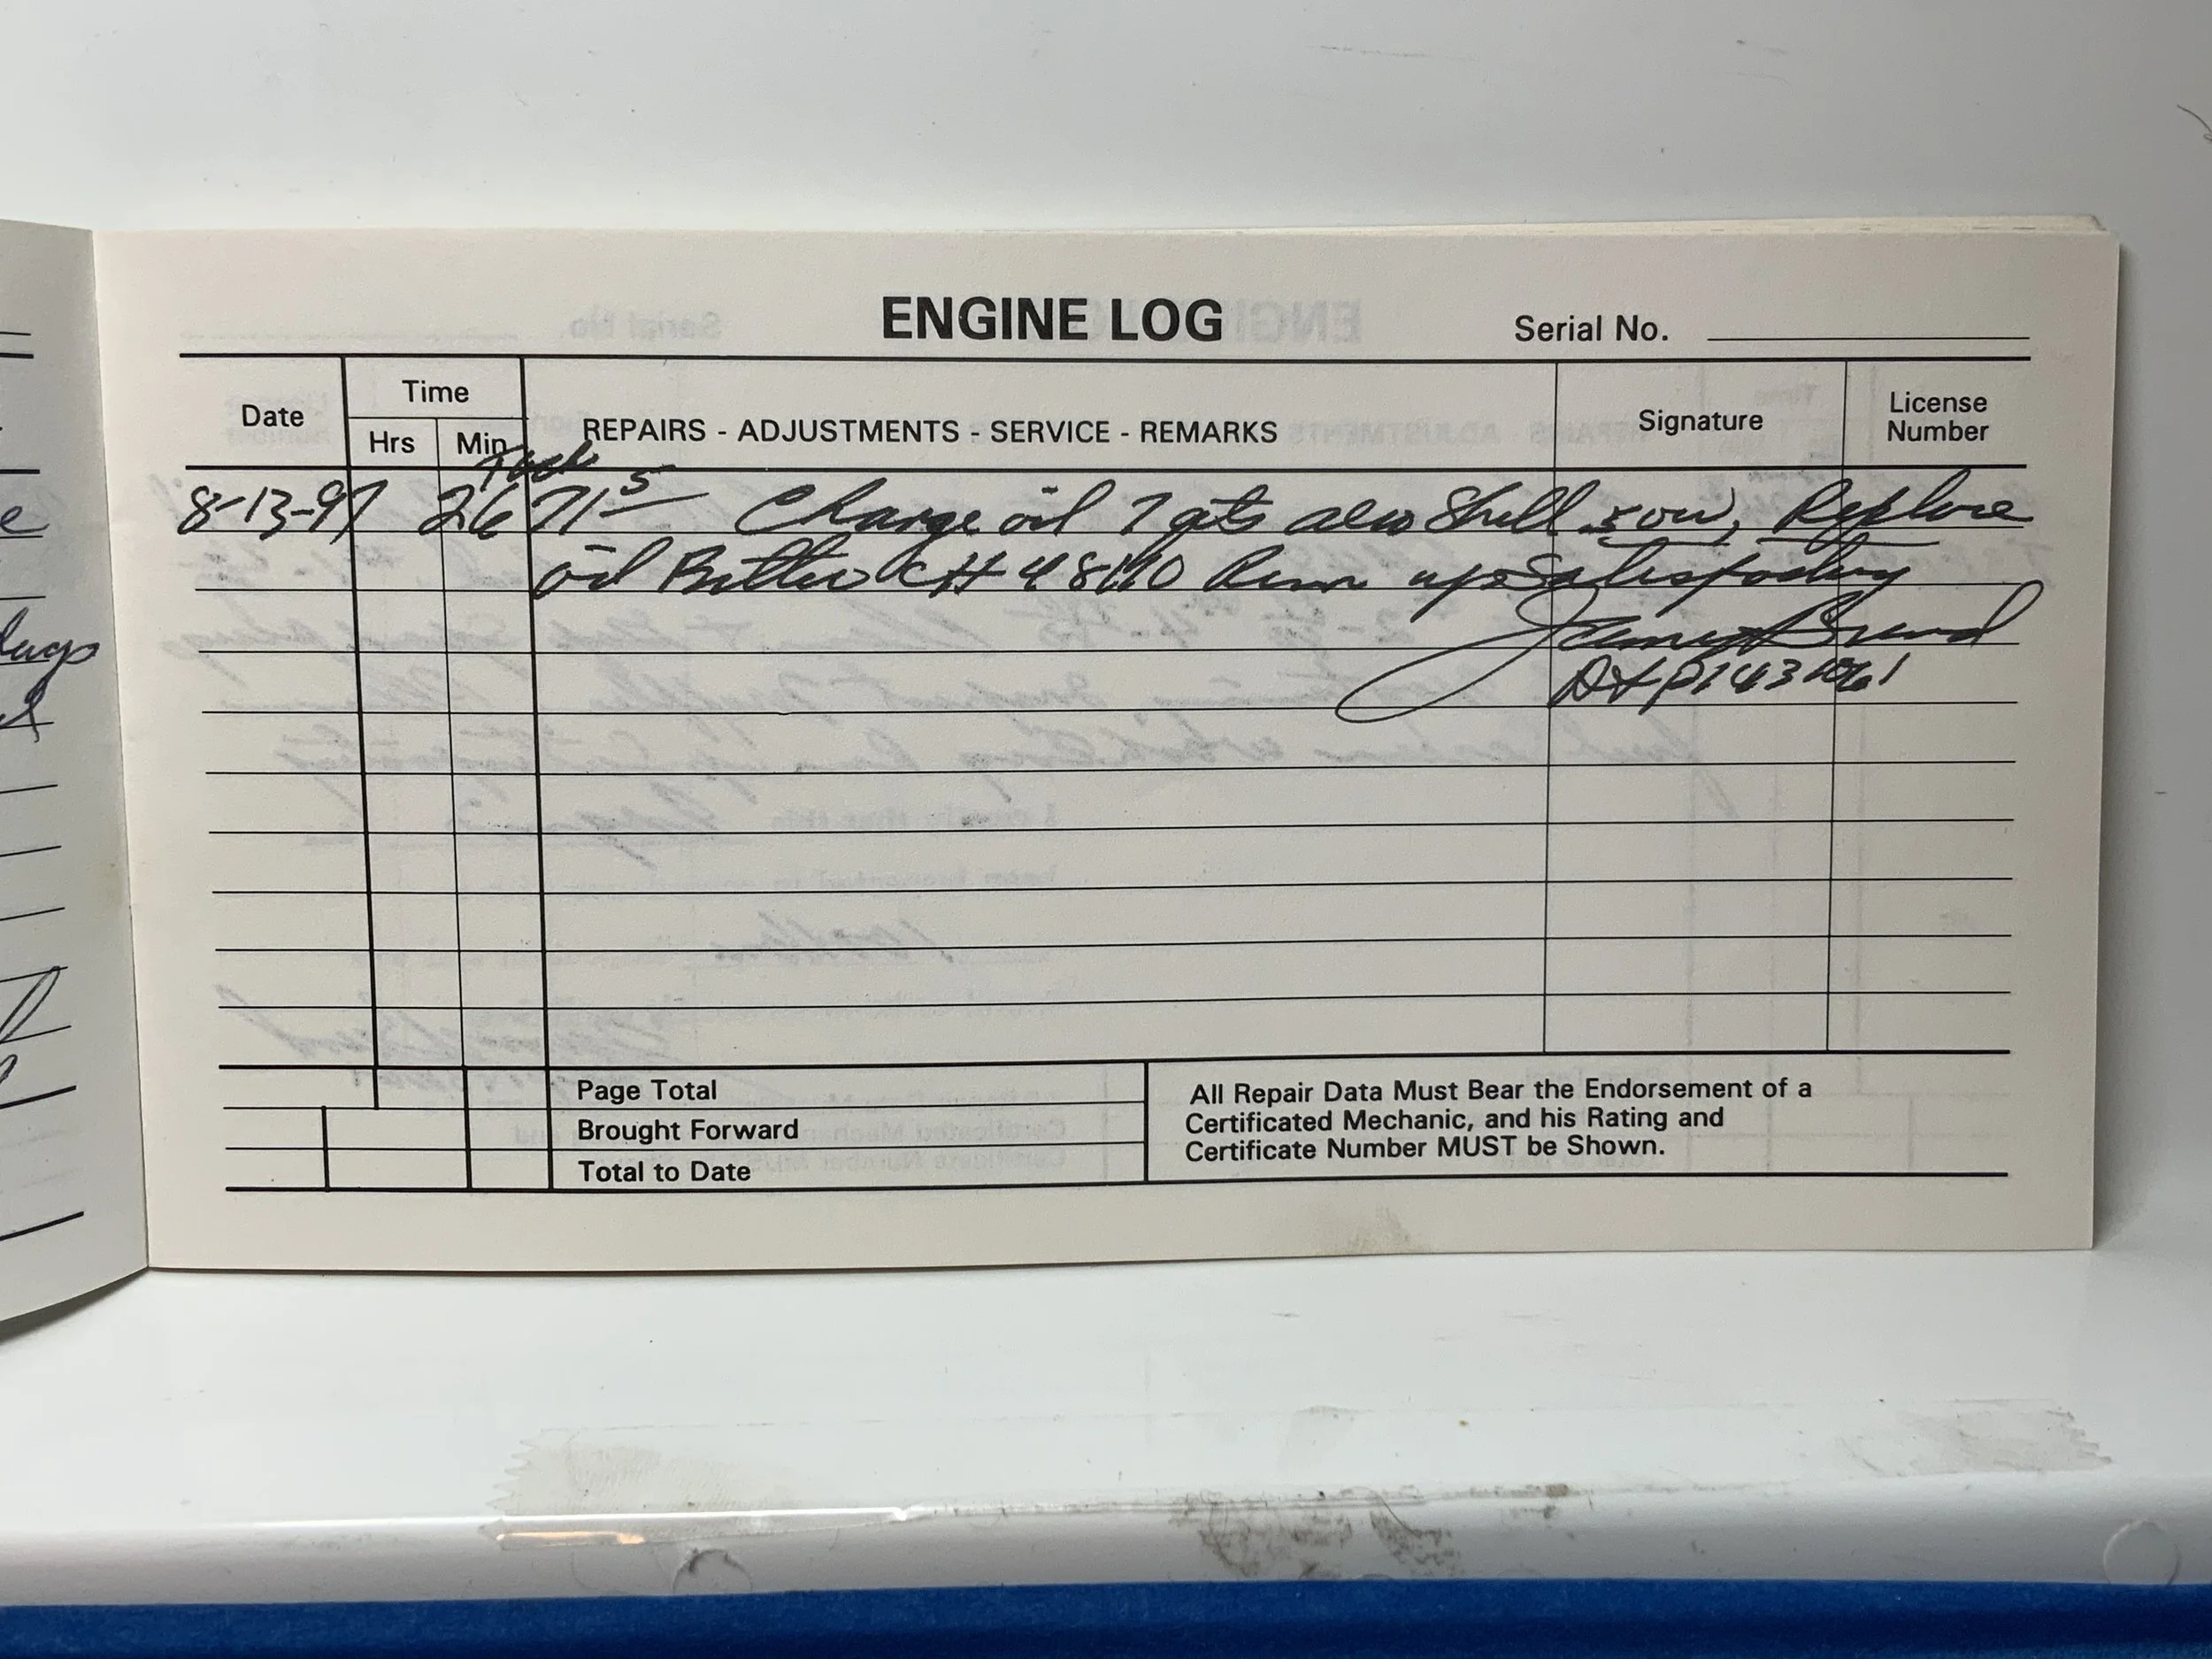 ENGINE LOG
Serial No.
Date
Time
Hrs
Min
REPAIRS - ADJUSTMENTS - SERVICE - REMARKS
Signature
License Number
Tach
8-13-97 2671 5 Change oil 7 qts Shell 50W, Replace
oil CH 48110 Run up Satisfactory
James
A&P
Page Total
Brought Forward
Total to Date
All Repair Data Must Bear the Endorsement of a
Certificated Mechanic, and his Rating and
Certificate Number MUST be Shown.